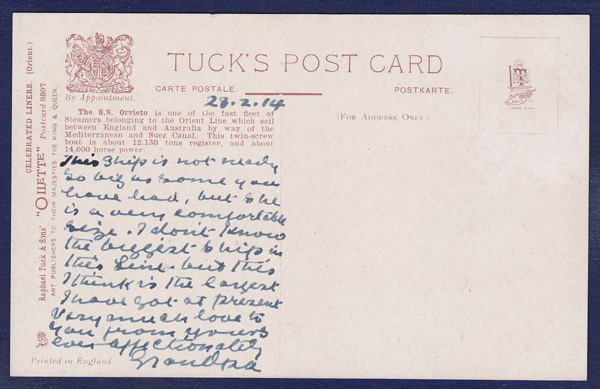 TUCK'S POST CARD
CARTE POSTALE.
POSTKARTE.
By Appointment.
23.2.14
(FOR ADDRESS ONLY.)
The S.S. Orvieto is one of the fast fleet of
Steamers belonging to the Orient Line which sail
between England and Australia by way of the
Mediterranean and Suez Canal. This twin-screw
boat is about 12,130 tons register, and about
14,000 horse power.
This ship is not nearly
so big as some you
have had, but she
is a very comfortable
size. I don't know
the biggest ship in
this Line but this
I think is the largest
I have got at present
Very much love to
you from yours
ever affectionately
Grandpa
Printed in England
CELEBRATED LINERS. (Orient.)
Raphael Tuck & Sons' "OILETTE" Postcard 9897
ART PUBLISHERS TO THEIR MAJESTIES THE KING & QUEEN.